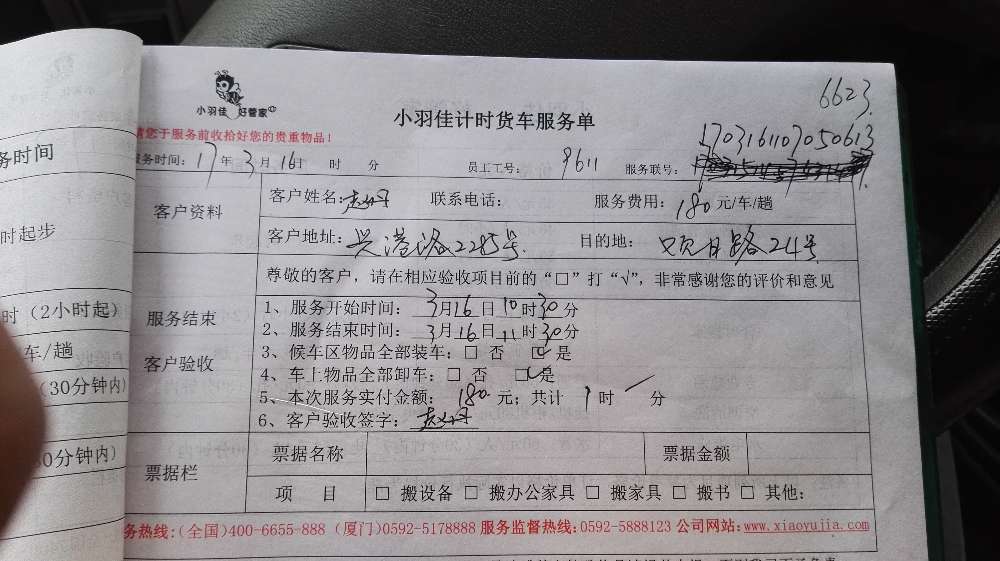 6623
小羽佳 好管家
小羽佳计时货车服务单
请您于服务前收拾好您的贵重物品！
1703161107050613
服务时间：17年3月16日 时 分 员工工号：9611 服务联号：
客户资料
客户姓名：赵丹 联系电话： 服务费用：180元/车/趟
客户地址：兴港路2285号 目的地：路24号
尊敬的客户，请在相应验收项目前的“□”打“√”，非常感谢您的评价和意见
服务结束
客户验收
1、服务开始时间：3月16日10时30分
2、服务结束时间：3月16日11时30分
3、候车区物品全部装车：□ 否 ☑ 是
4、车上物品全部卸车：□ 否 ☑ 是
5、本次服务实付金额：180元；共计1时 分
6、客户验收签字：赵丹
票据栏
票据名称 票据金额
项 目 □ 搬设备 □ 搬办公家具 □ 搬家具 □ 搬书 □ 其他：
服务热线:(全国)400-6655-888 (厦门)0592-5178888 服务监督热线:0592-5888123 公司网站:www.xiaoyujia.com
务时间
时起步
时（2小时起）
车/趟
（30分钟内）
30分钟内）